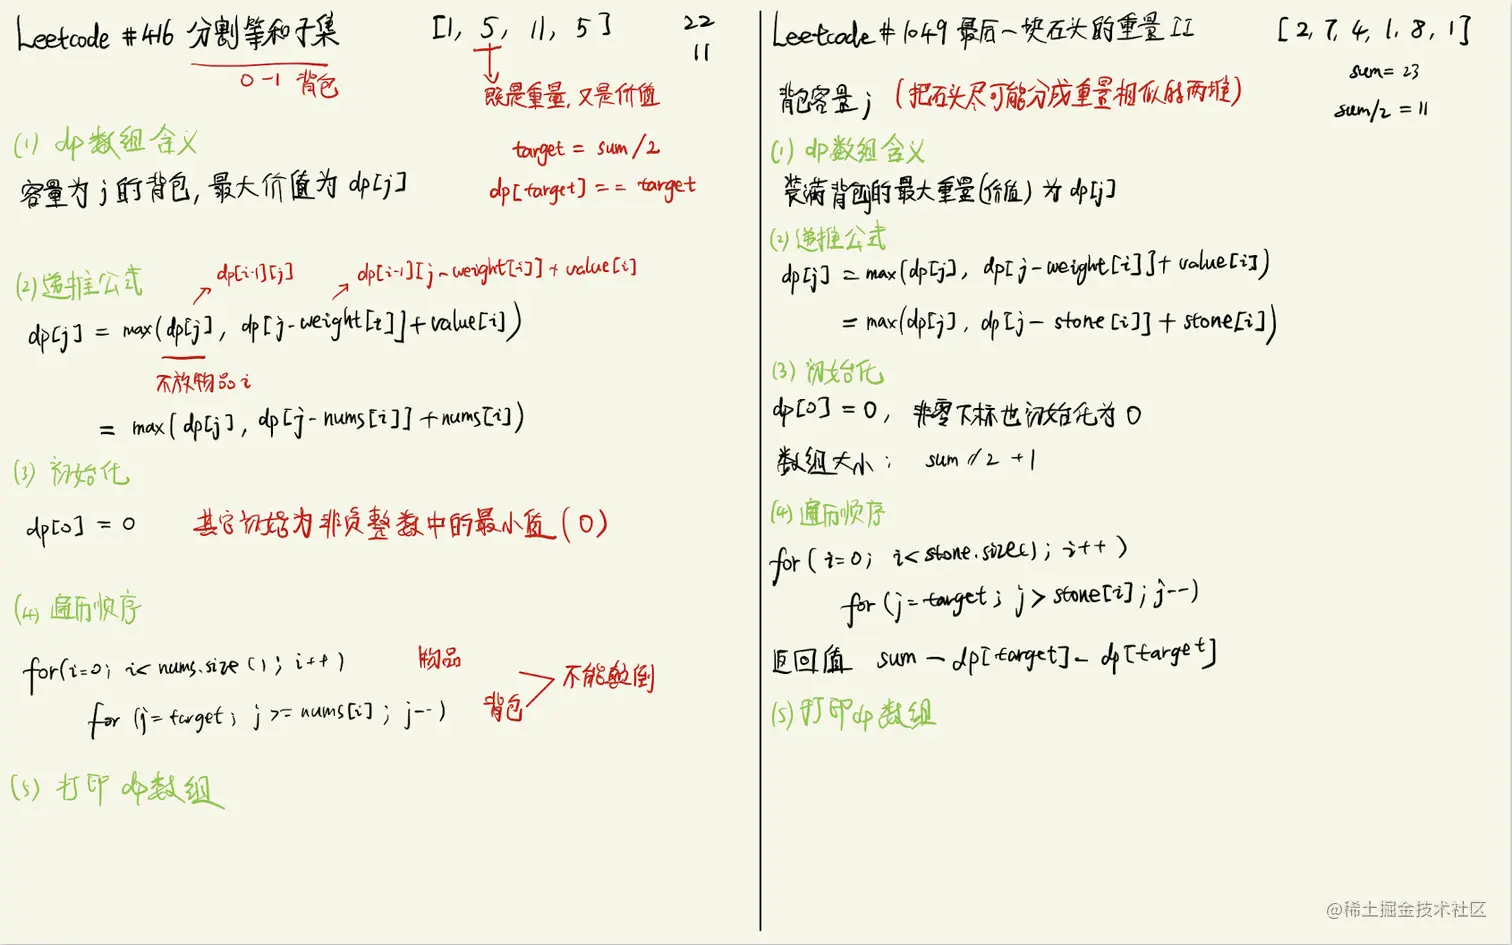 Leetcode #416 分割等和子集 [1, 5, 11, 5] 22
11
0-1 背包
既是重量,又是价值
target = sum/2
dp[target] == target
(1) dp数组含义
容量为j的背包,最大价值为dp[j]
(2) 递推公式
dp[i-1][j] dp[i-1][j-weight[i]]+value[i]
dp[j] = max(dp[j], dp[j-weight[i]]+value[i])
不放物品i
= max(dp[j], dp[j-nums[i]]+nums[i])
(3) 初始化
dp[0] = 0 其它初始为非负整数中的最小值(0)
(4) 遍历顺序
for(i=0; i<nums.size(); i++) 物品
for (j=target; j>=nums[i]; j--) 背包
不能颠倒
(5) 打印 dp数组
Leetcode #1049 最后一块石头的重量II [2,7,4,1,8,1]
sum=23
sum/2=11
背包容量j (把石头尽可能分成重量相似的两堆)
(1) dp数组含义
装满背包j的最大重量(价值)为dp[j]
(2) 递推公式
dp[j] = max(dp[j], dp[j-weight[i]]+value[i])
= max(dp[j], dp[j-stone[i]]+stone[i])
(3) 初始化
dp[0]=0, 非零下标也初始化为0
数组大小: sum//2+1
(4) 遍历顺序
for(i=0; i<stone.size(); i++)
for(j=target; j>stone[i]; j--)
返回值 sum-dp[target]-dp[target]
(5) 打印dp数组
@稀土掘金技术社区